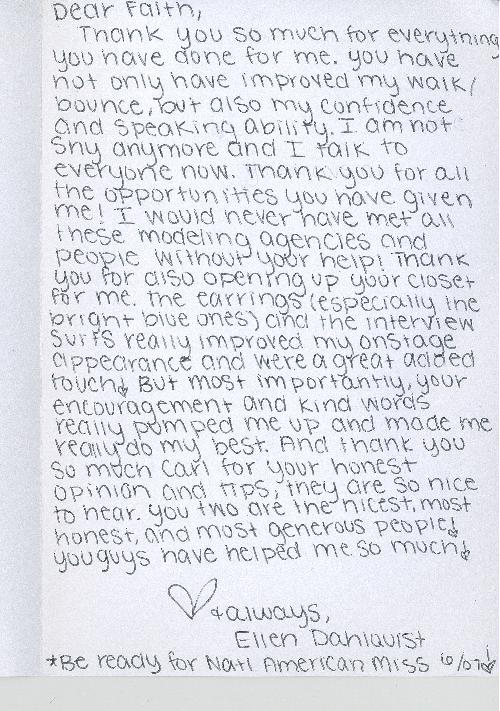 Dear Faith,
Thank you so much for everything
you have done for me. you have
not only have improved my walk/
bounce, but also my confidence
and speaking ability. I am not
shy anymore and I talk to
everyone now. Thank you for all
the opportunities you have given
me! I would never have met all
these modeling agencies and
people without your help! Thank
you for also opening up your closet
for me. The earrings (especially the
bright blue ones) and the interview
suits really improved my onstage
appearance and were a great added
touch! But most importantly, your
encouragement and kind words
really pumped me up and made me
really do my best. And thank you
so much Carl for your honest
opinion and tips, they are so nice
to hear. you two are the nicest, most
honest, and most generous people!
you guys have helped me so much!
♡ always,
Ellen Dahlquist
*Be ready for Natl American Miss 6/07!